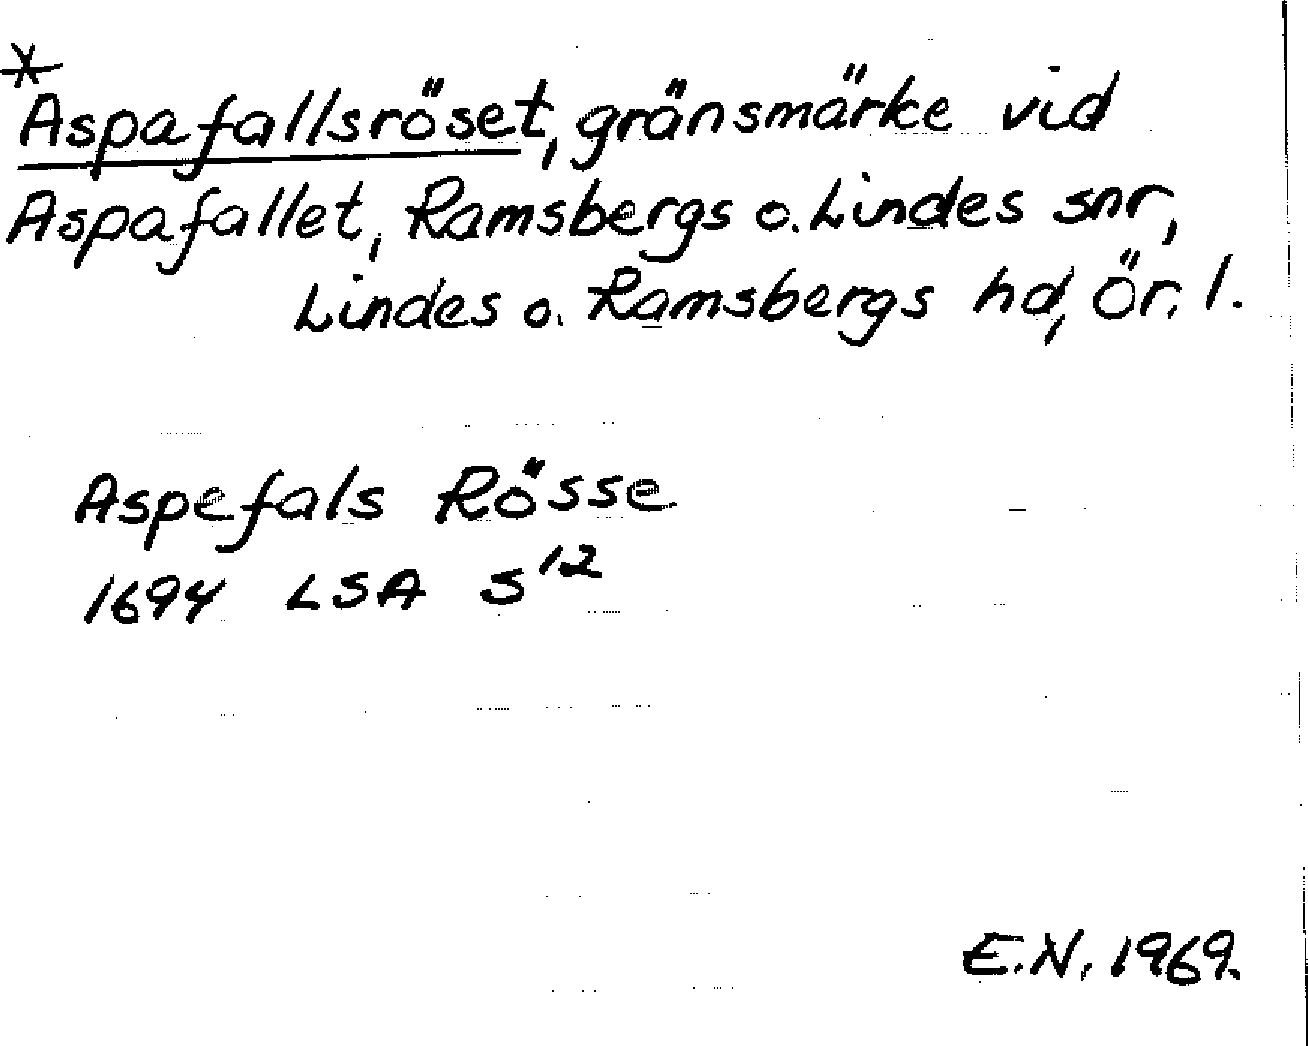 *Aspafallsröset, gränsmärke vid
Aspafallet, Ramsbergs o. Lindes snr,
Lindes o. Ramsbergs hd, Ör. l.
Aspefals Rösse
1694 LSA S¹²
E.N. 1969.